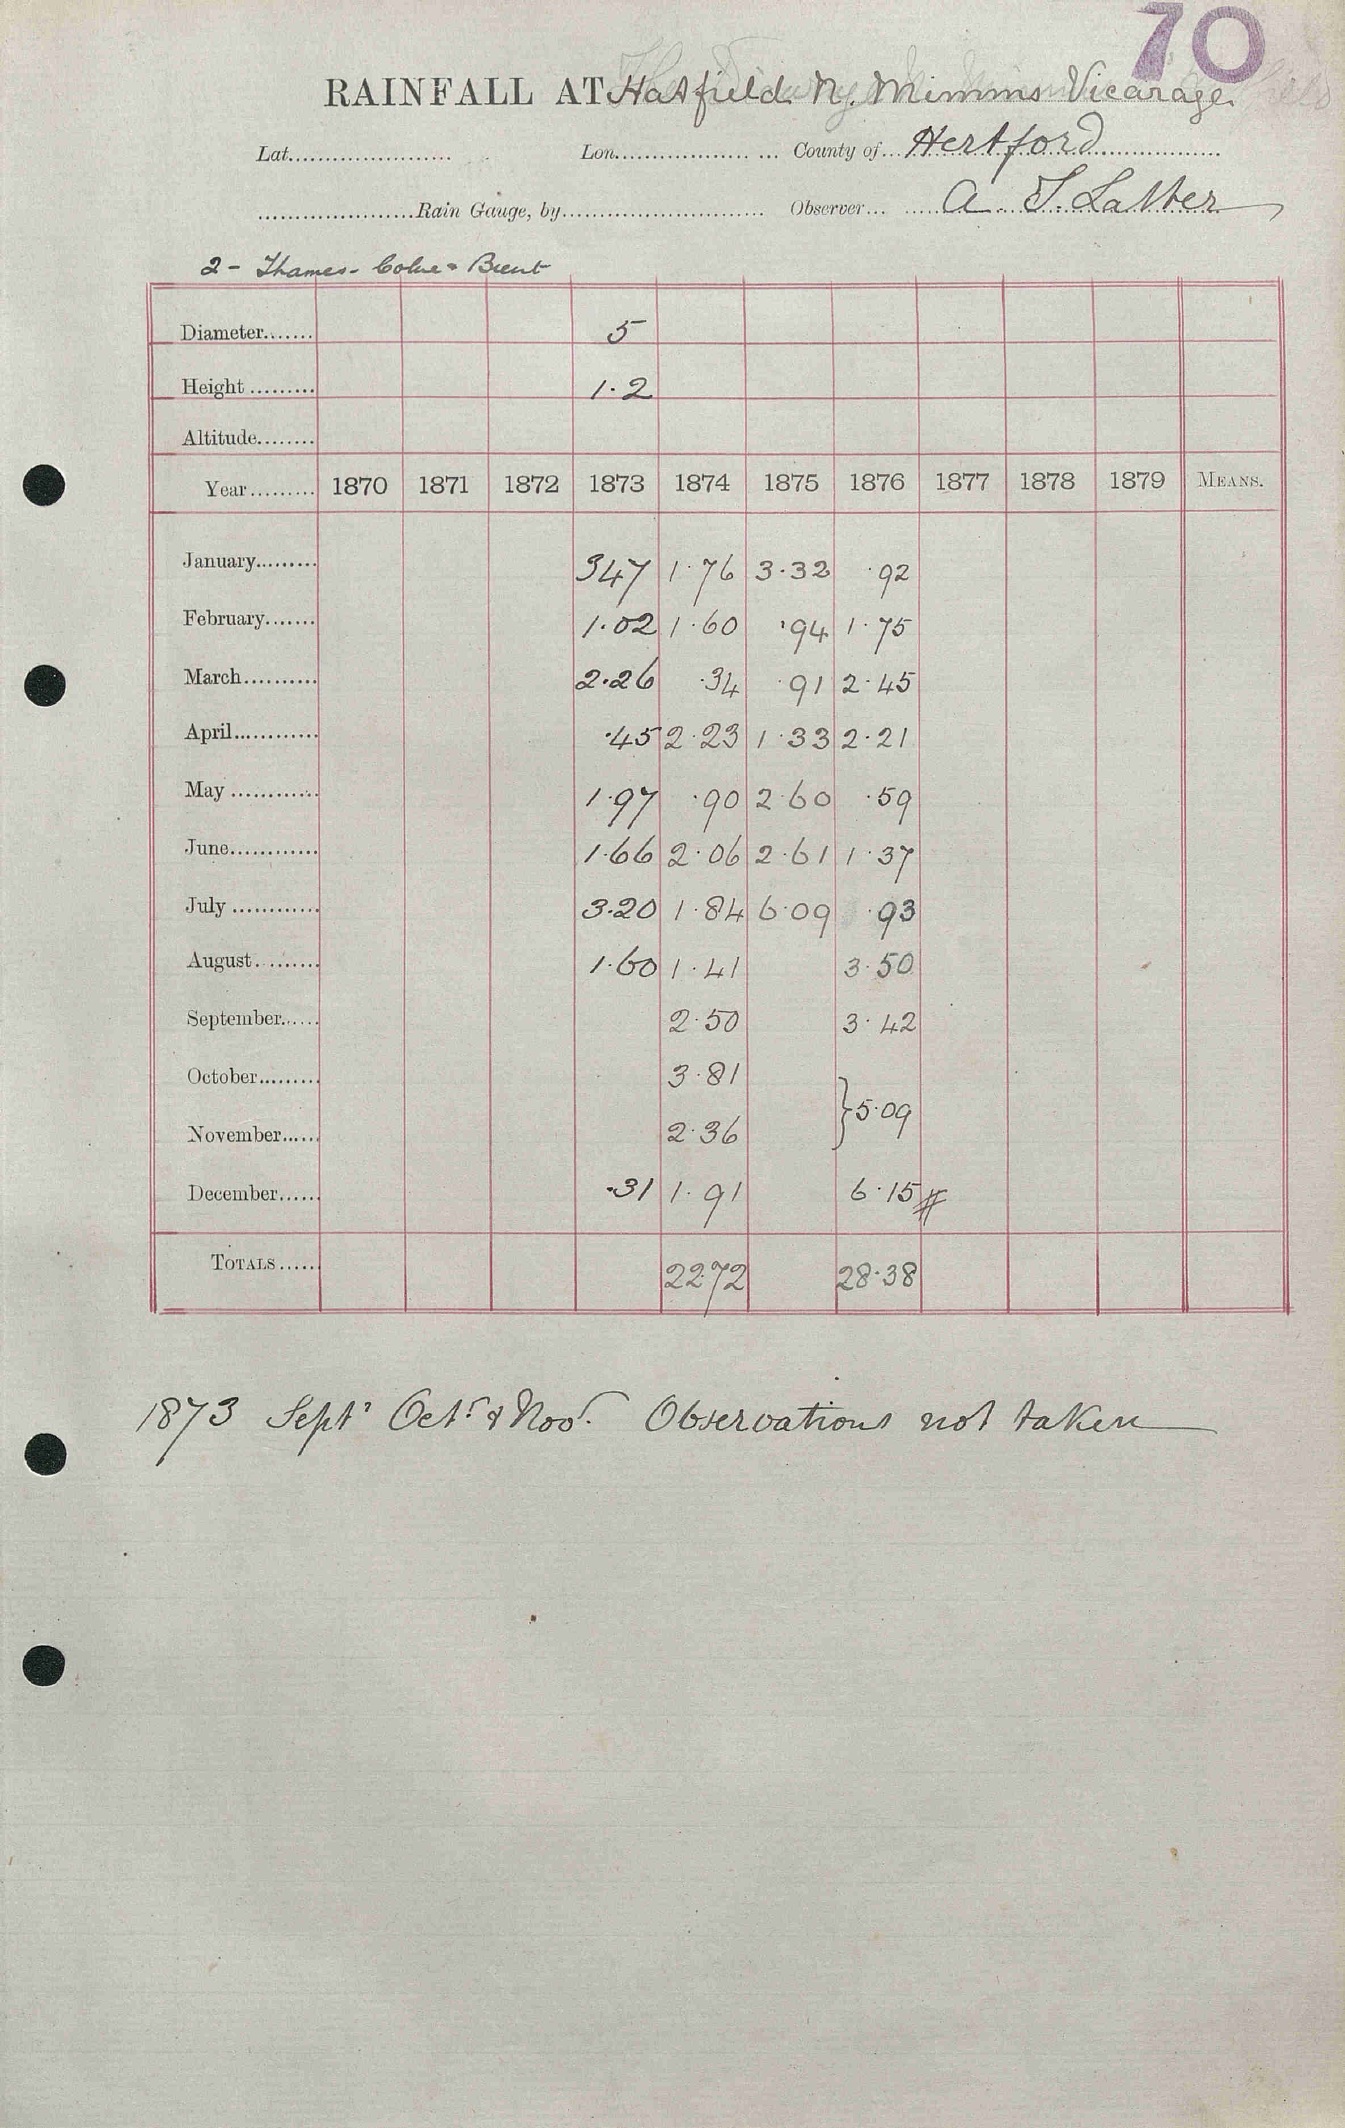 70
RAINFALL AT Hatfield N. Mimms Vicarage
Lat...................... Lon.................. ... County of... Hertford
......................Rain Gauge, by............................ Observer... A. T. Latter
2 - Thames - Colne & Brent
Diameter....... 5
Height ......... 1.2
Altitude........
Year......... 1870 1871 1872 1873 1874 1875 1876 1877 1878 1879 MEANS.
January......... 347 1.76 3.32 .92
February....... 1.02 1.60 .94 1.75
March.......... 2.26 .34 .91 2.45
April............ .45 2.23 1.33 2.21
May ............ 1.97 .90 2.60 .59
June............ 1.66 2.06 2.61 1.37
July ............ 3.20 1.84 6.09 .93
August......... 1.60 1.41 3.50
September...... 2.50 3.42
October......... 3.81
} 5.09
November...... 2.36
December...... .31 1.91 6.15 #
TOTALS...... 22.72 28.38
1873 Sept' Octr. & Novr. Observations not taken